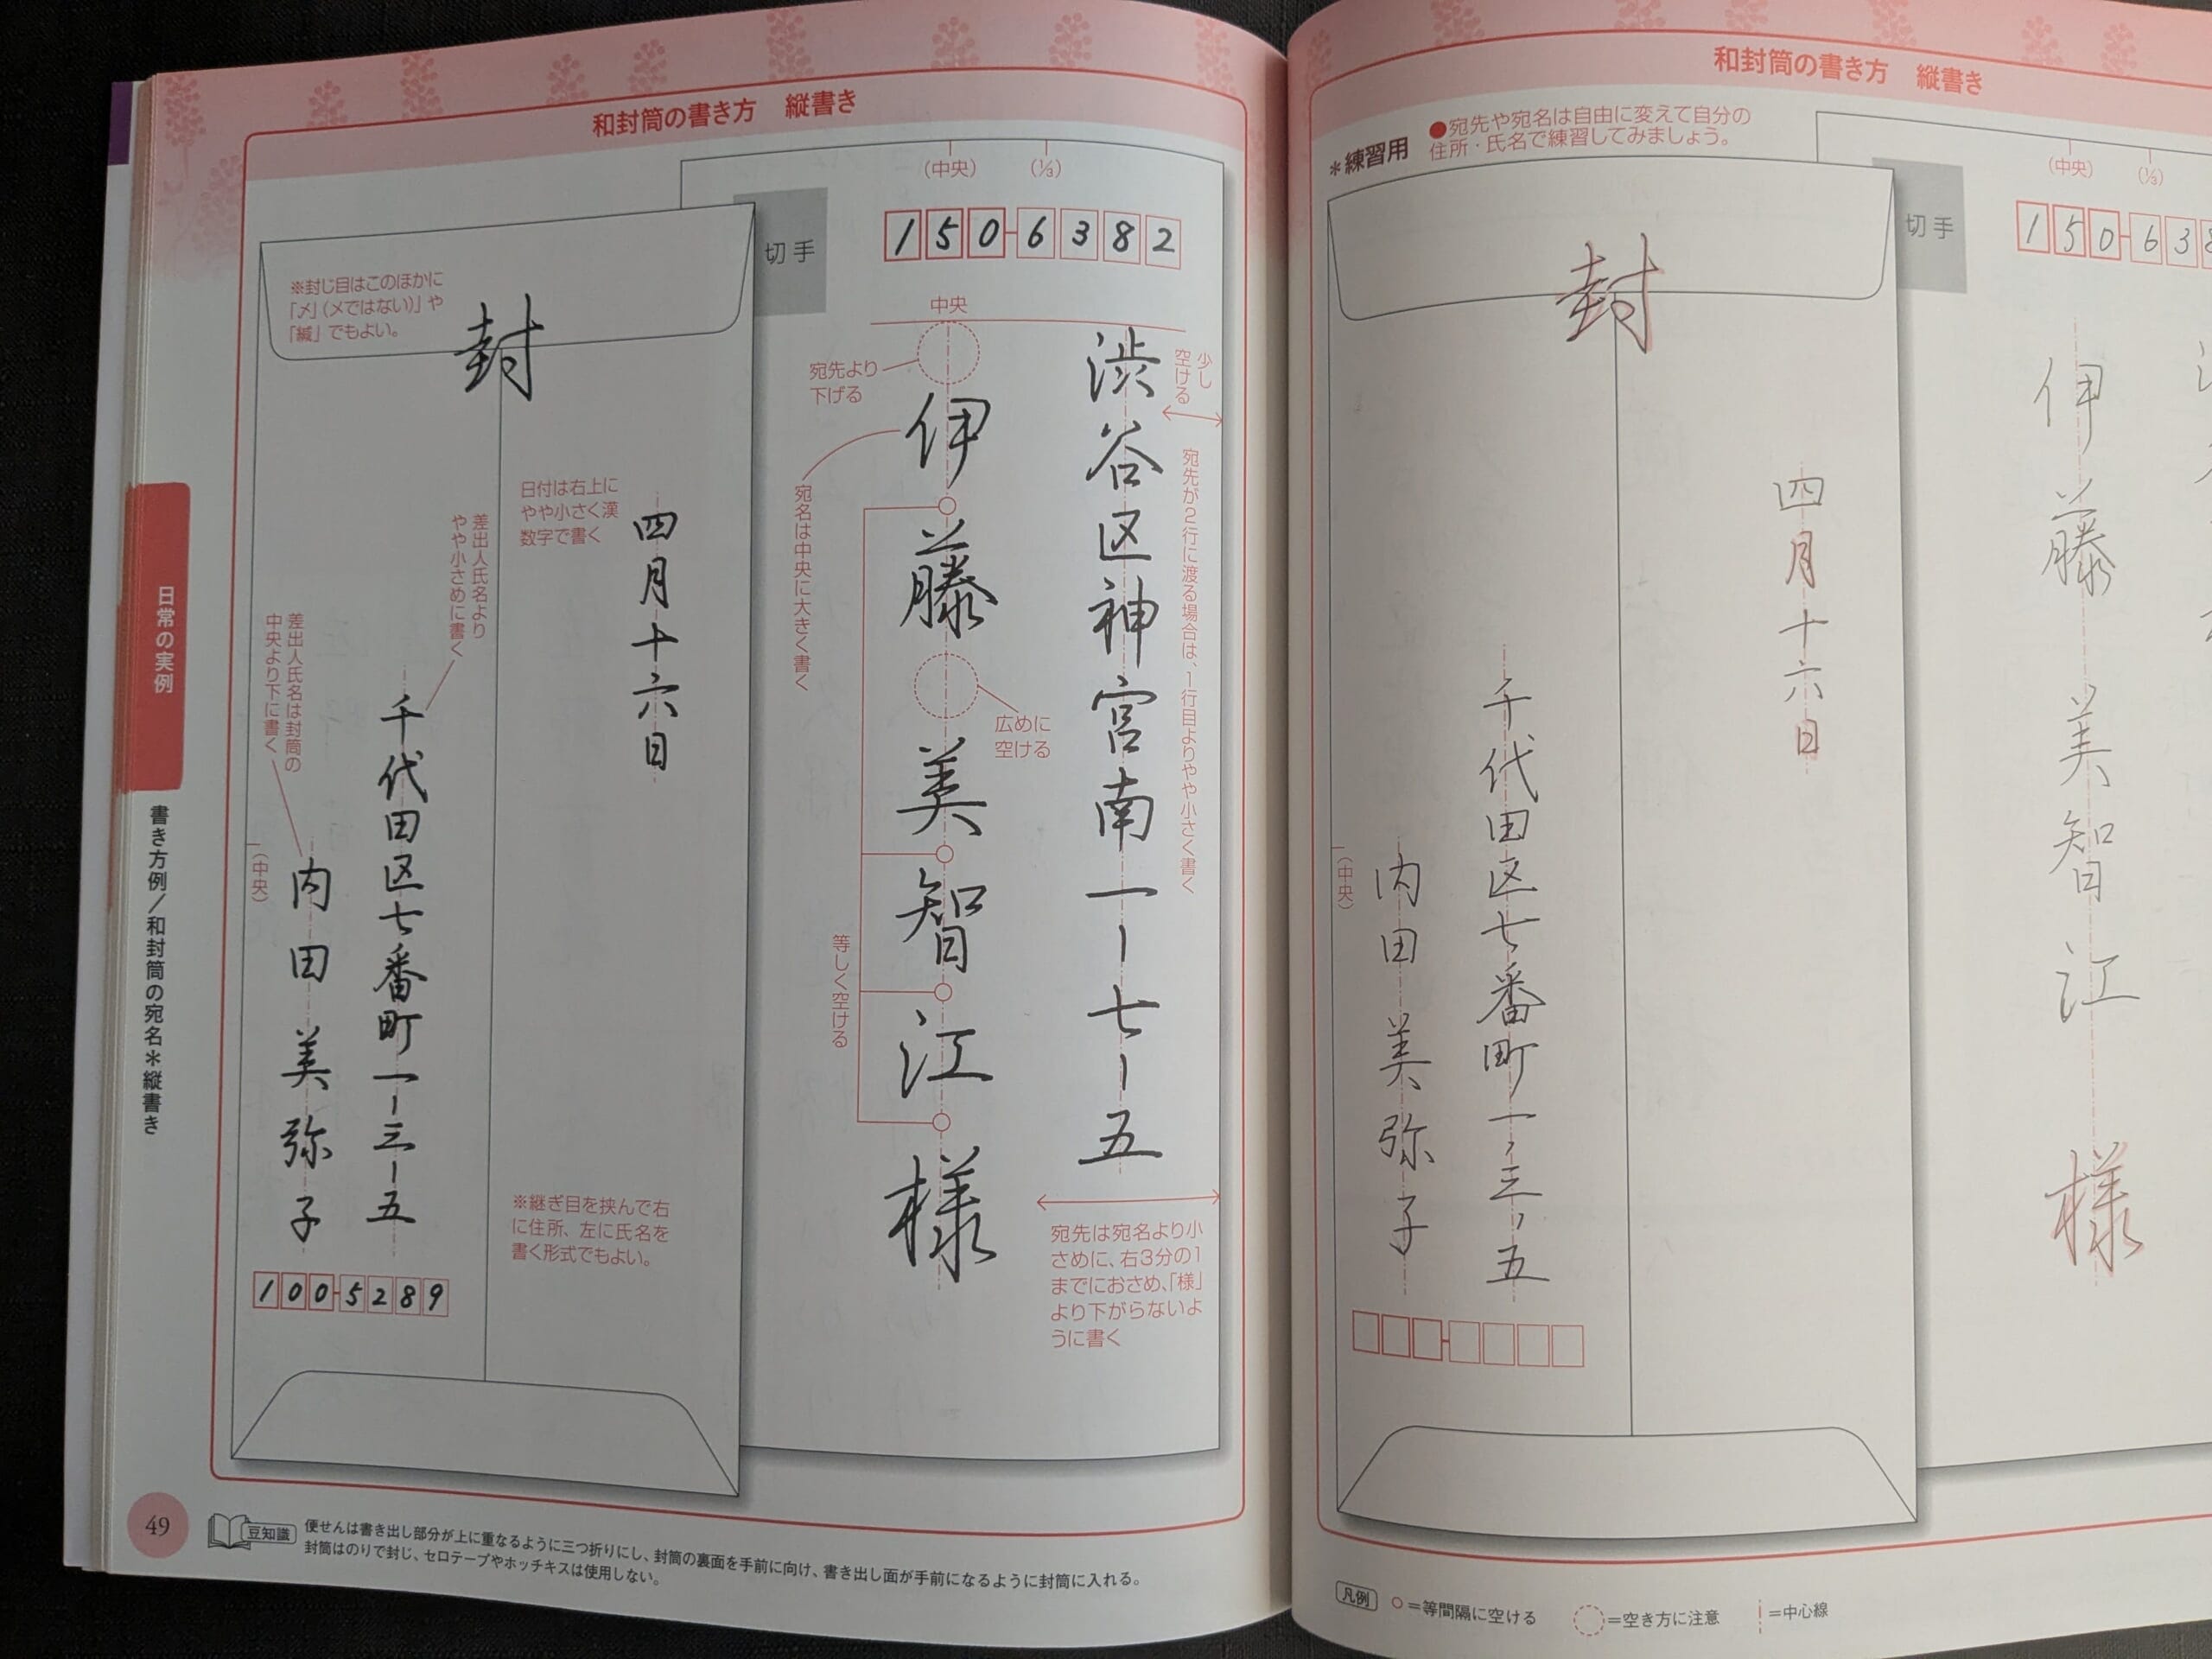 和封筒の書き方　縦書き
(中央)
(⅓)
切手
150-6382
中央
少し
空ける
渋谷区神宮南一ー七ー五
宛先が2行に渡る場合は、1行目よりやや小さく書く
宛先より
下げる
伊藤美智江様
宛名は中央に大きく書く
広めに
空ける
等しく空ける
宛先は宛名より小
さめに、右3分の1
までにおさめ、「様」
より下がらないよ
うに書く
※封じ目はこのほかに
「〆」(メではない)」や
「緘」でもよい。
封
日付は右上に
やや小さく漢
数字で書く
四月十六日
差出人氏名より
やや小さめに書く
千代田区七番町一ー三ー五
差出人氏名は封筒の
中央より下に書く
(中央)
内田美弥子
100-5289
※継ぎ目を挟んで右
に住所、左に氏名を
書く形式でもよい。
日常の実例
書き方例/和封筒の宛名＊縦書き
49
豆知識
便せんは書き出し部分が上に重なるように三つ折りにし、封筒の裏面を手前に向け、書き出し面が手前になるように封筒に入れる。
封筒はのりで封じ、セロテープやホッチキスは使用しない。
和封筒の書き方　縦書き
＊練習用
●宛先や宛名は自由に変えて自分の
住所・氏名で練習してみましょう。
(中央)
(⅓)
切手
150-638
伊藤美智江様
封
四月十六日
千代田区七番町一ー三ー五
(中央)
内田美弥子
凡例
○=等間隔に空ける
=空き方に注意
=中心線